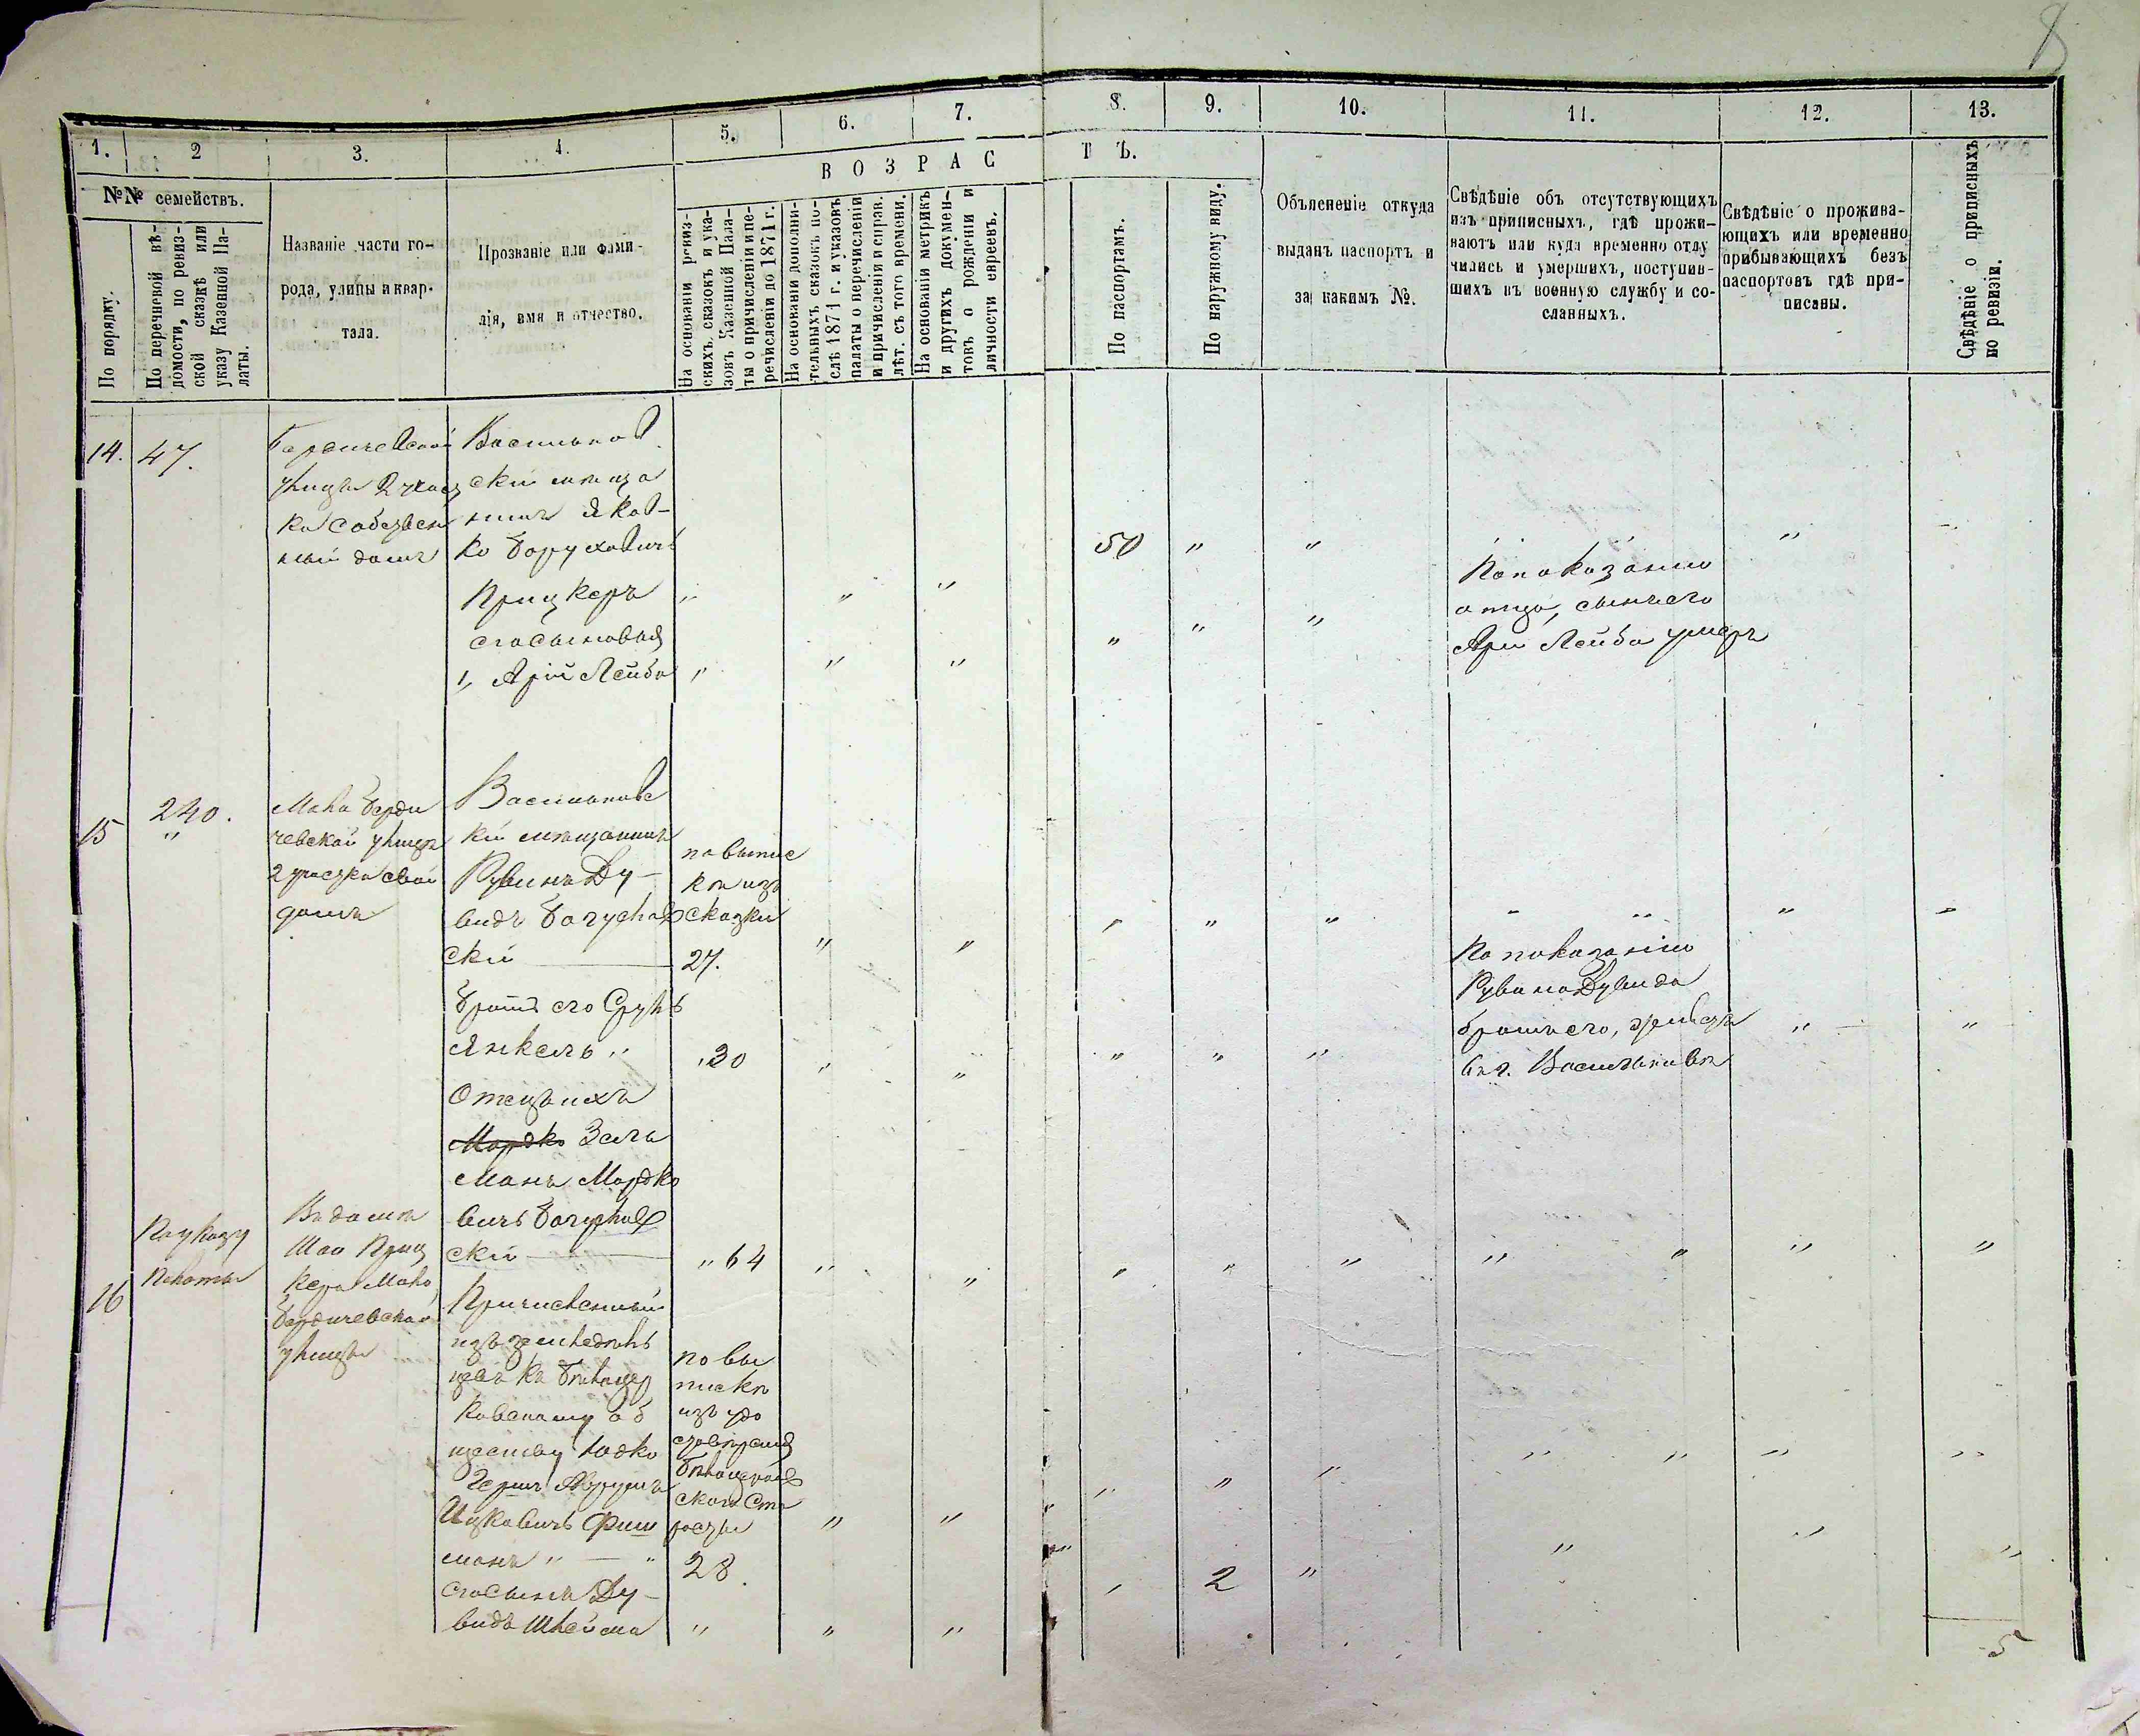 8
1.
2
3.
4.
5.
6.
7.
8.
9.
10.
11.
12.
13.
№№ семействъ.
По порядку.
По перечневой вѣ-
домости, по ревиз-
ской сказкѣ или
указу Казенной Па-
латы.
Названіе части го-
рода, улицы и квар-
тала.
Прозваніе или фами-
лія, имя и отчество.
ВОЗРАС
ТЪ.
На основаніи ревиз-
скихъ сказокъ и ука-
зовъ Казенной Пала-
ты о причисленіи и пе-
речисленіи до 1871 г.
На основаніи дополни-
тельныхъ сказокъ по-
слѣ 1871 г. и указовъ
палаты о перечисленіи
и причисленіи и справ.
лѣт. съ того времени.
На основаніи метрикъ
и другихъ докумен-
товъ о рожденіи и
личности евреевъ.
По паспортамъ.
По наружному виду.
Объясненіе откуда
выданъ паспортъ и
за какимъ №.
Свѣдѣніе объ отсутствующихъ
изъ приписныхъ, гдѣ прожи-
ваютъ или куда временно отлу
чились и умершихъ, поступив-
шихъ въ военную службу и со-
сланныхъ.
Свѣдѣніе о прожива-
ющихъ или временно
прибывающихъ безъ
паспортовъ гдѣ при-
писаны.
Свѣдѣніе о приписныхъ
по ревизіи.
14.
47.
Бердичевской
улицы 2 участ
ка собствен
ный домъ
Васильков
скій мѣща
нинъ Янкель
Боруховичъ
Прицкеръ
его сыновья
1, Арій Лейба
50
По показанію
отца, сынъ его
Арій Лейба умеръ
15
240.
Мало Берди
чевской улицы
2 участка свой
домъ
Васильковс
кій мѣщанинъ
Рувинъ Ду-
видъ Богуслав
скій
по выпис
кѣ изъ
сказки
27.
братъ его Сруль
Янкель
30
По показанію
Рувина Дувида
братъ его, живетъ
въ г. Васильковѣ
Отецъ ихъ
Мордко Зель
манъ Мордко
вичъ Богуслав
скій
64
16
По указу
Палаты
Въ домѣ
Шаи Приц
кера Мало
Бердичевской
улицы
Причисленный
изъ земледѣль
цевъ къ Бѣлоцер
ковскому об
ществу Юдко
Гершъ Аврумъ
Ицковичъ Фиш
манъ
по вы
пискѣ
изъ удо
стовѣренія
Бѣлоцерков
скаго Ста
росты
28.
его сынъ Ду-
видъ Шлейма
2
5